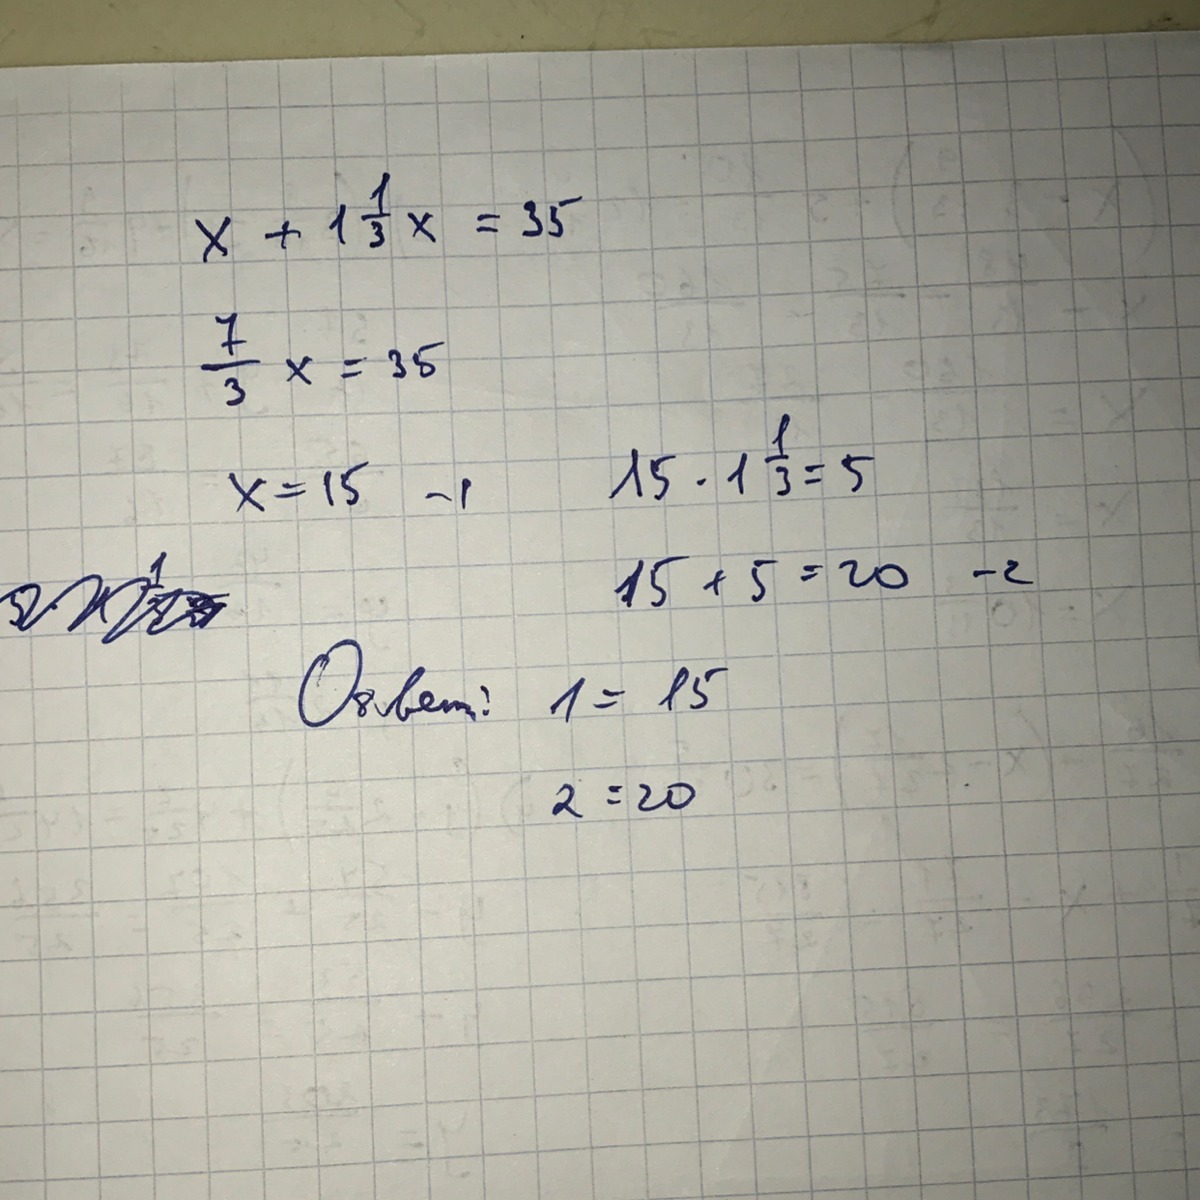 x + 1 1/3 x = 35
7/3 x = 35
x = 15 – 1
15 · 1 1/3 = 5
15 + 5 = 20 – 2
Ответ: 1 = 15
2 = 20